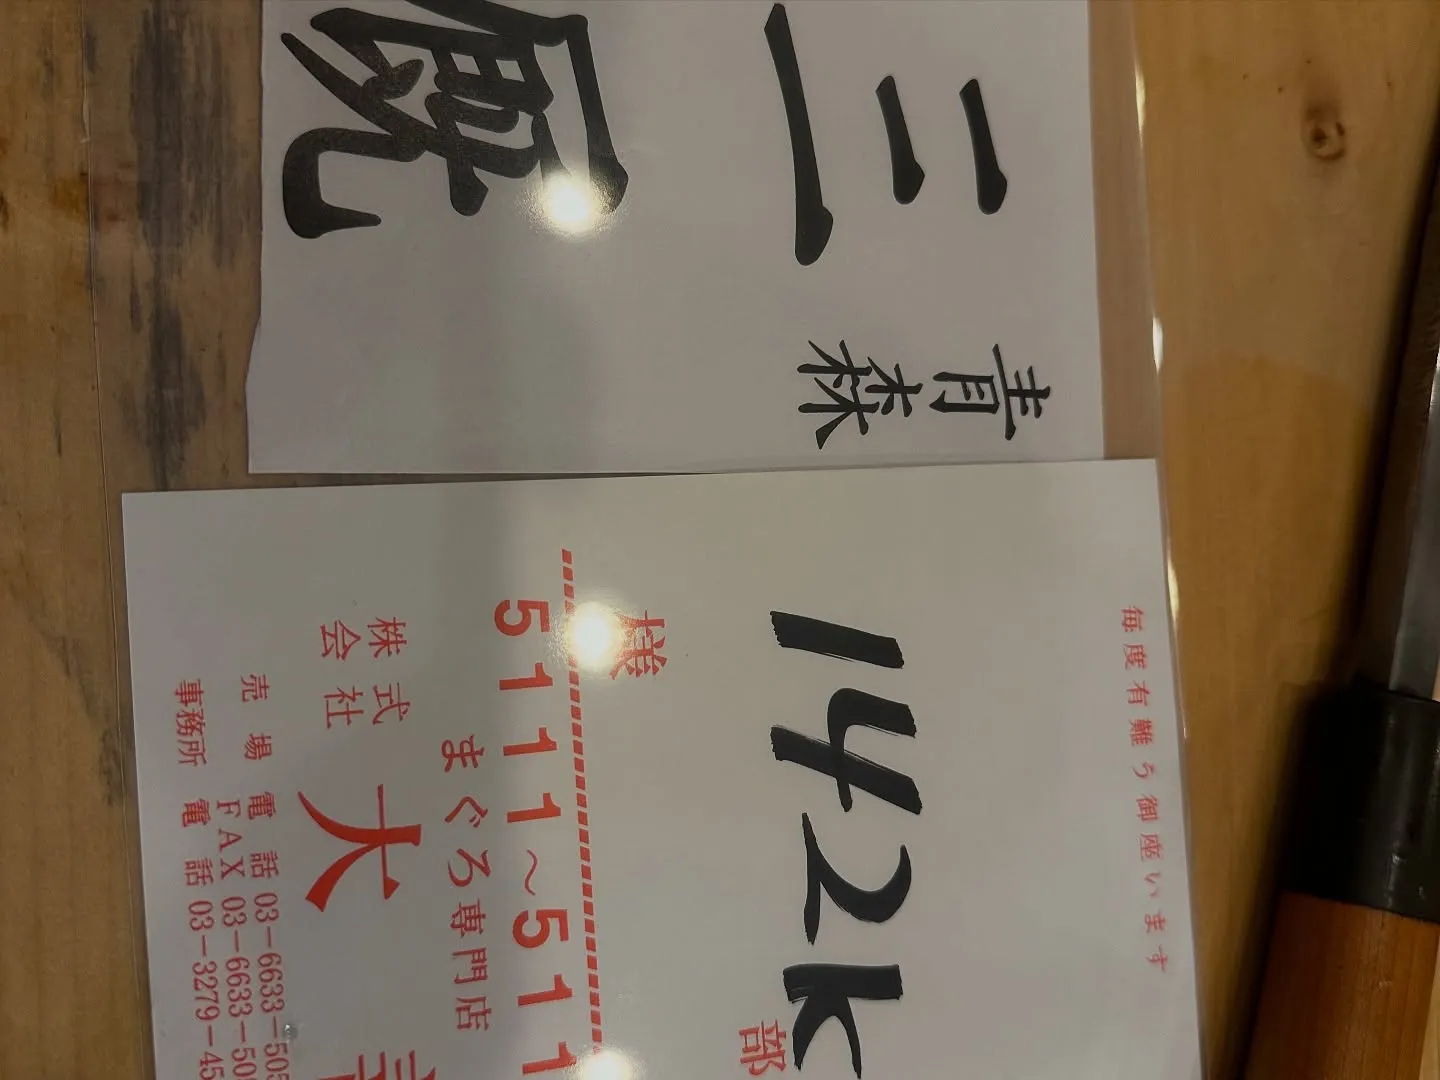 青森
三厩
毎度有難う御座います
142k
部
様
5111～5111
まぐろ専門店
株式会社 大
売場 電話 03-6633-505
FAX 03-6633-50
事務所 電話 03-3279-45